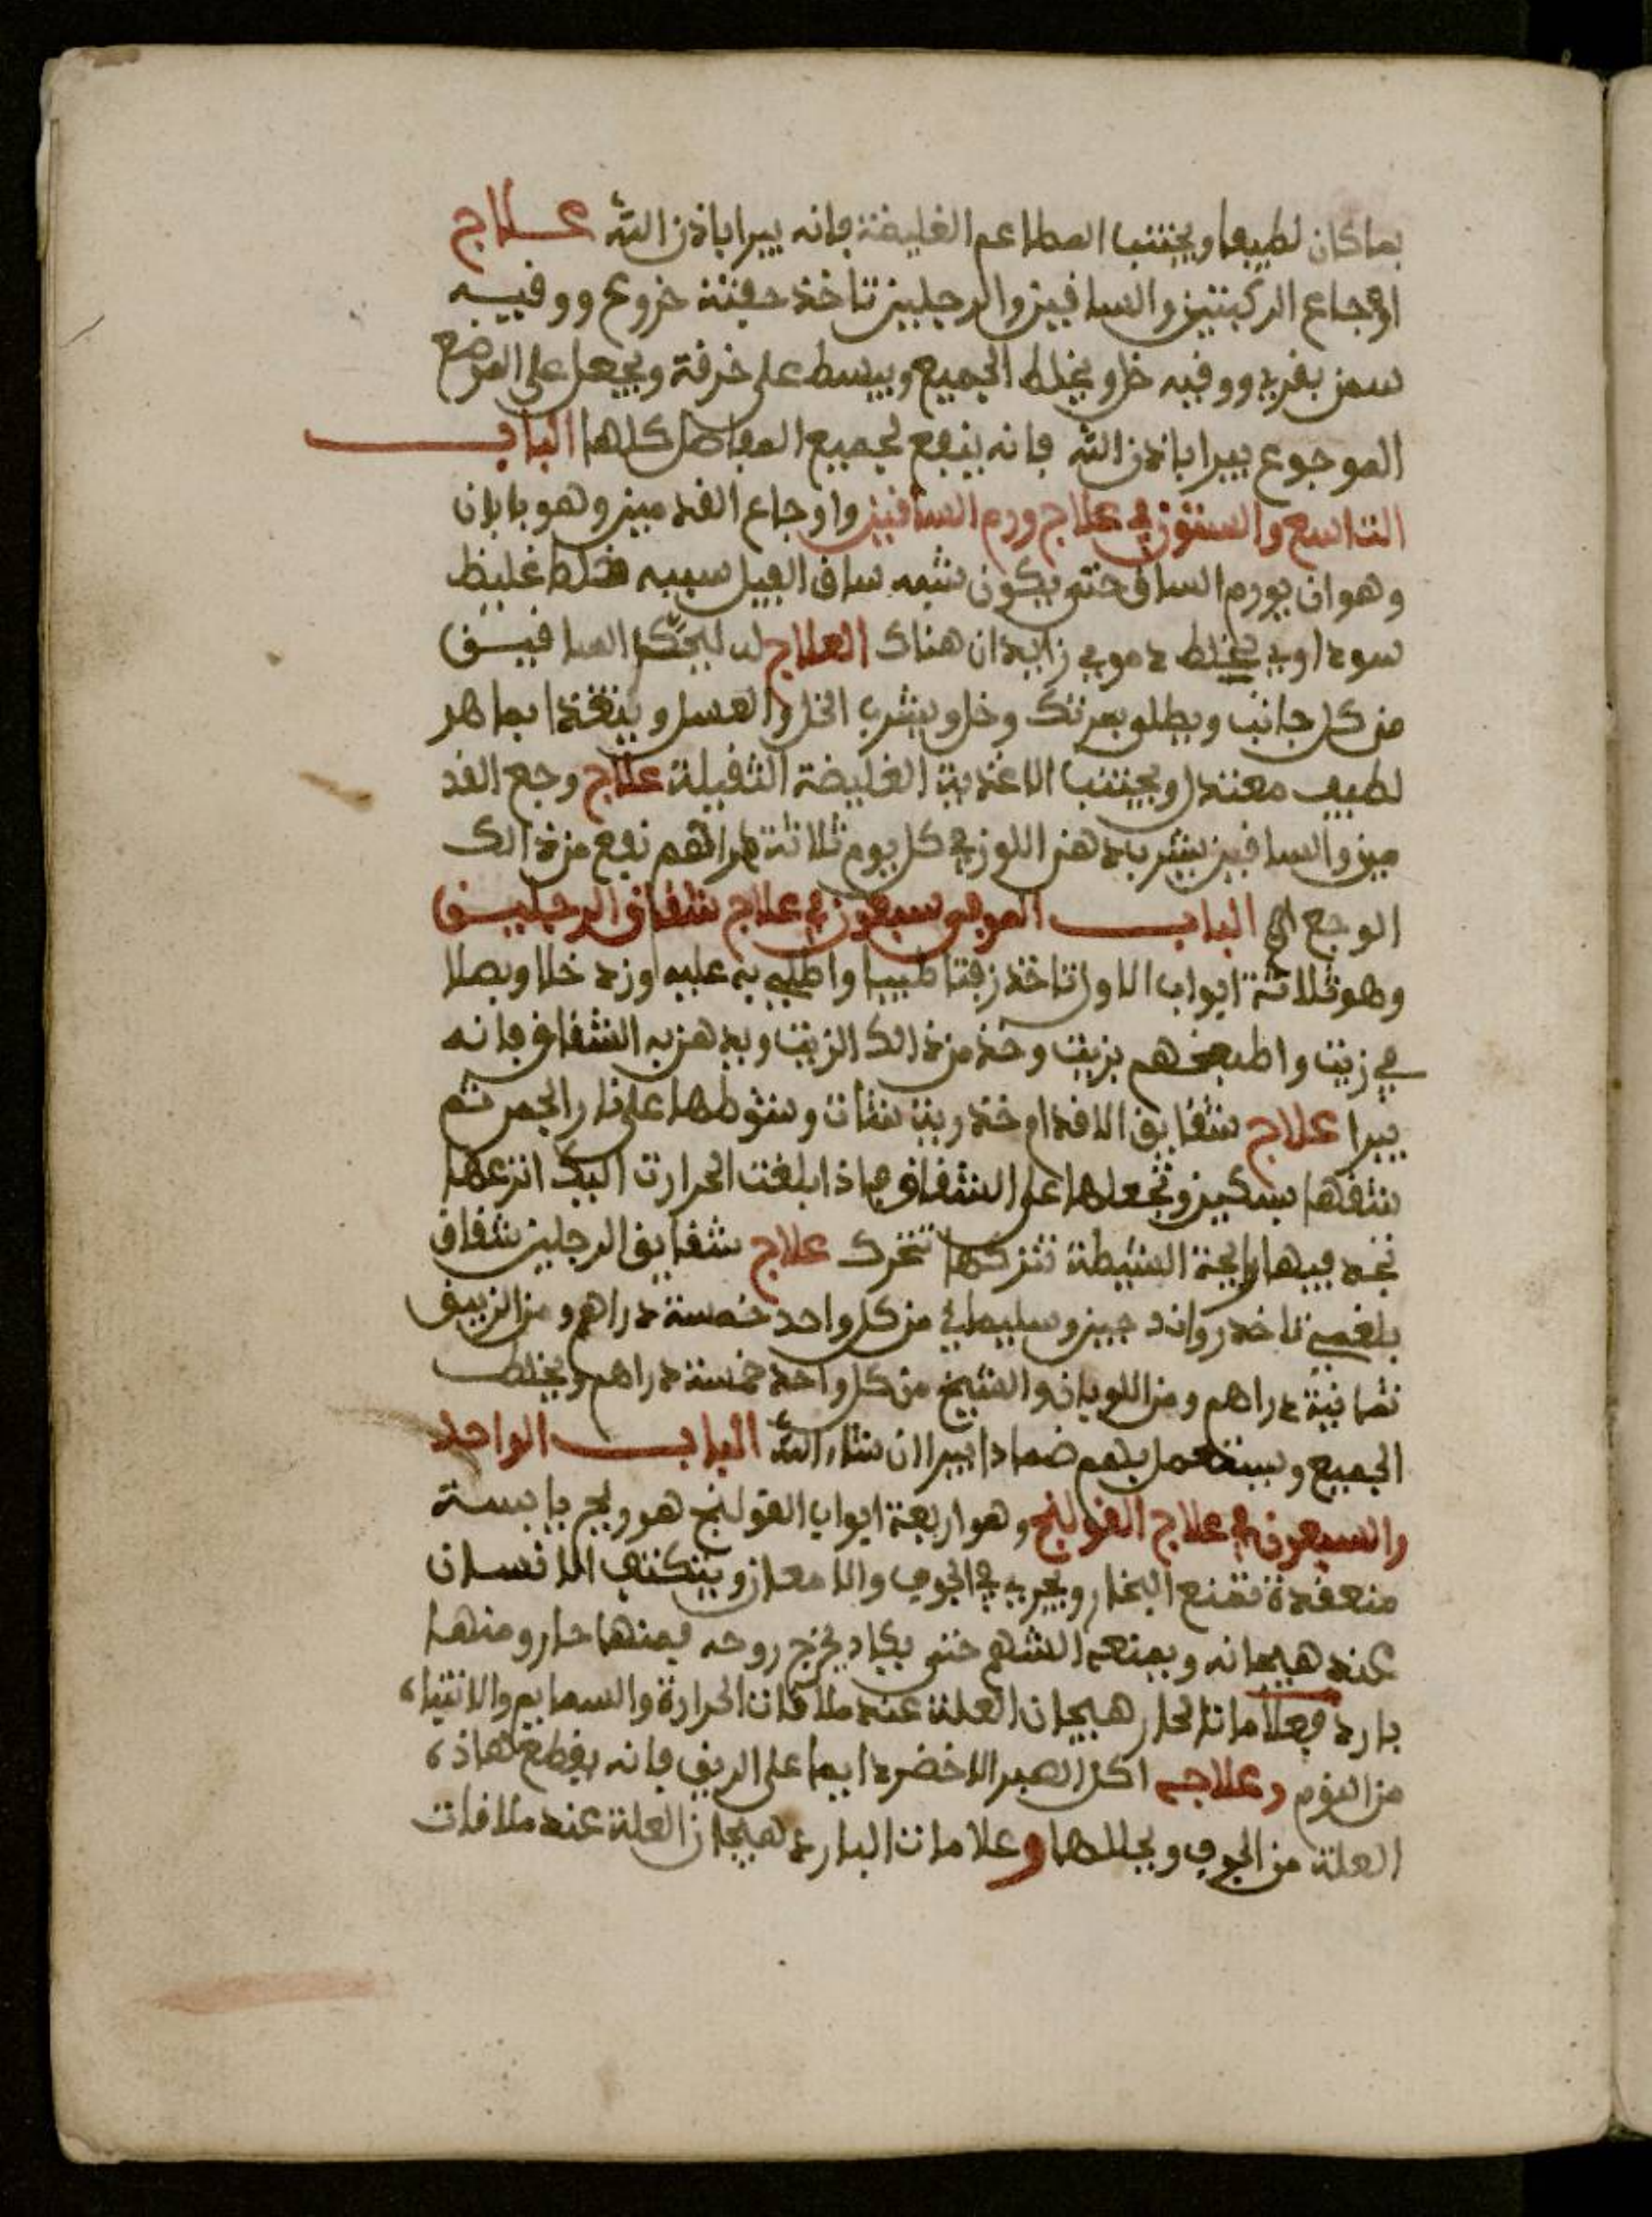 بما كان لطيفا ويجتنب المطاعم الغليضة فانه يبرا باذن الله علاج
اوجاع الركبتين والساقين والرجلين تاخذ حفنة خروع ووقيه
سمن بقري ووقيه خل ويخلط الجميع ويبسط على خرقة ويجعل على الموضع
الموجوع يبرا باذن الله فانه ينفع لجميع المفاصل كلها الباب
التاسع والستون في علاج ورم الساقين واوجاع القدمين وهو بابان
وهو ان يورم الساق حتى يكون شبه ساق الفيل سببه خلط غليظ
سوداوي يخلط دموي زايدان هناك العلاج له ليحكم الساقين
من كل جانب ويطلو بمرتك وخل ويشرب الخل والعسل ويتغذا بما هو
لطيف معتدل ويجتنب الاغذية الغليضة الثقيلة علاج وجع القد
مين والساقين يشرب دهن اللوز في كل يوم ثلاثة دراهم نفع من ذالك
الوجع الى الباب الموفي سبعون في علاج شقاق الرجلين
وهو ثلاثة ابواب الاول تاخذ زفتا طيبا واطليه به عليه وزد خلا وبصلا
في زيت واطبخهم بزيت وخذ من ذالك الزيت ويدهن به الشقاق فانه
يبرا علاج شقايق الاقدام خذ رية شات وشوطها على نار الجمر ثم
شقها بسكين وتجعلها على الشقاق فاذا بلغت الحرارت اليك انزعها
تجد فيها رايحة الشيطة تتركها تخرك علاج شقايق الرجلين شقاق
بلغمي تاخد رواند جين وسليماني من كل واحد خمسة دراهم ومن الزيبق
ثمانية دراهم ومن اللوبان والشيح من كل واحد خمسة دراهم ويخلط
الجميع ويستعمل بلهم ضمادا يبرا ان شاء الله الباب الواحد
والسبعون في علاج القولنج وهو اربعة ابواب القولنج هو ريح يابسة
منعقدة تمنع البخار ويجري في الجوف والامعاز ويتكنني الانسان
عند هيجانه ويمنعه الشهم حتى يكاد يخرج روحه فمنها حار ومنها
بارد فعلامات الحار هيجان العلة عند ملاقات الحرارة والسمايم والاشياء
من الثوم وعلاجه اكل الصبر الاخضر دايما على الريق فانه يقطع هاذه
العلة من الجوف ويحللها وعلامات البارد هيجان العلة عند ملاقات